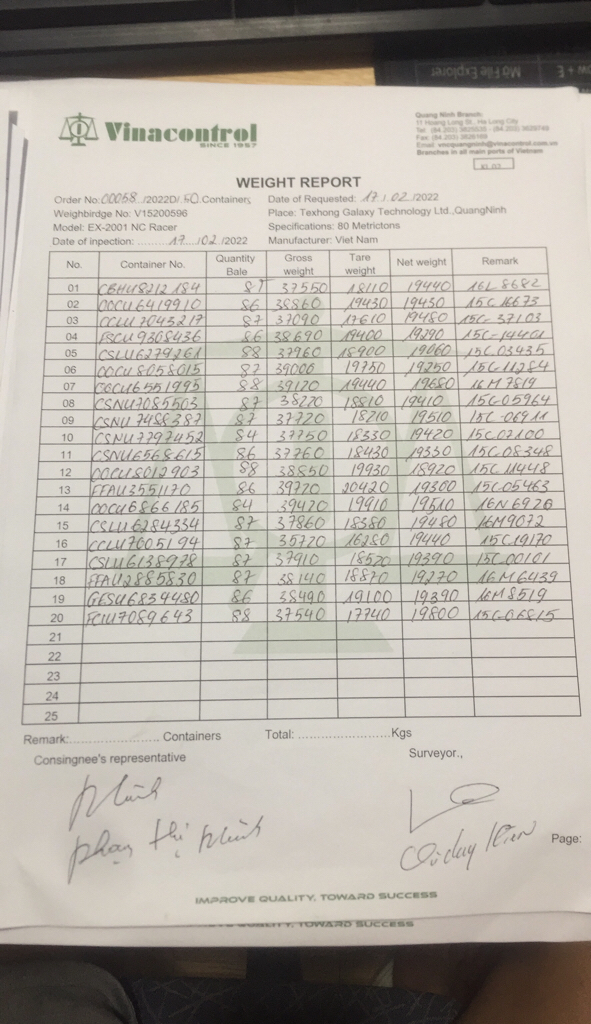 Vinacontrol
SINCE 1957
Quang Ninh Branch:
11 Hoang Long St., Ha Long City
Branches in all main ports of Vietnam
WEIGHT REPORT
Order No: 00058 /2022D/ 50 Containers Date of Requested: 17 / 02 /2022
Weighbirdge No: V15200596 Place: Texhong Galaxy Technology Ltd.,QuangNinh
Model: EX-2001 NC Racer Specifications: 80 Metrictons
Date of inpection: ......... 17 ... / 02 /2022 Manufacturer: Viet Nam
No. Container No. Quantity Bale Gross weight Tare weight Net weight Remark
01 CBHU8212184 87 37550 18110 19440 16L8682
02 OOCU6419910 86 38860 19430 19430 15C16673
03 CCLU7043217 87 37090 17610 19480 15C-37103
04 FSCU9308436 86 38690 19400 19290 15C-14401
05 CSLU6279261 88 37960 18900 19060 15C03435
06 OOCU8058015 87 39000 19750 19250 15C11284
07 OOCU6551995 88 39120 19440 19680 16M7819
08 CSNU7085503 87 38220 18810 19410 15C05964
09 CSNU7488387 87 37720 18210 19510 15C-06911
10 CSNU7797452 84 37750 18330 19420 15C07100
11 CSNU6568615 86 37760 18430 19330 15C08348
12 OOCU8012903 88 38850 19930 18920 15C11448
13 FFAU3551170 86 39720 20420 19300 15C05463
14 OOCU6866185 84 39420 19910 19510 16N6926
15 CSLU6284334 87 37860 18380 19480 16M9072
16 CCLU7005194 87 35720 16280 19440 15C19170
17 CSLU6138978 87 37910 18520 19390 15C00101
18 FFAU2885830 87 38140 18870 19270 16M6439
19 GESU6834480 86 38490 19100 19390 16M8519
20 FCIU7089643 88 37540 17740 19800 15C-06815
21
22
23
24
25
Remark:........................... Containers Total: ...........................Kgs
Consingnee's representative Surveyor.,
phạm thị
Page:
IMPROVE QUALITY, TOWARD SUCCESS
TOWARD SUCCESS